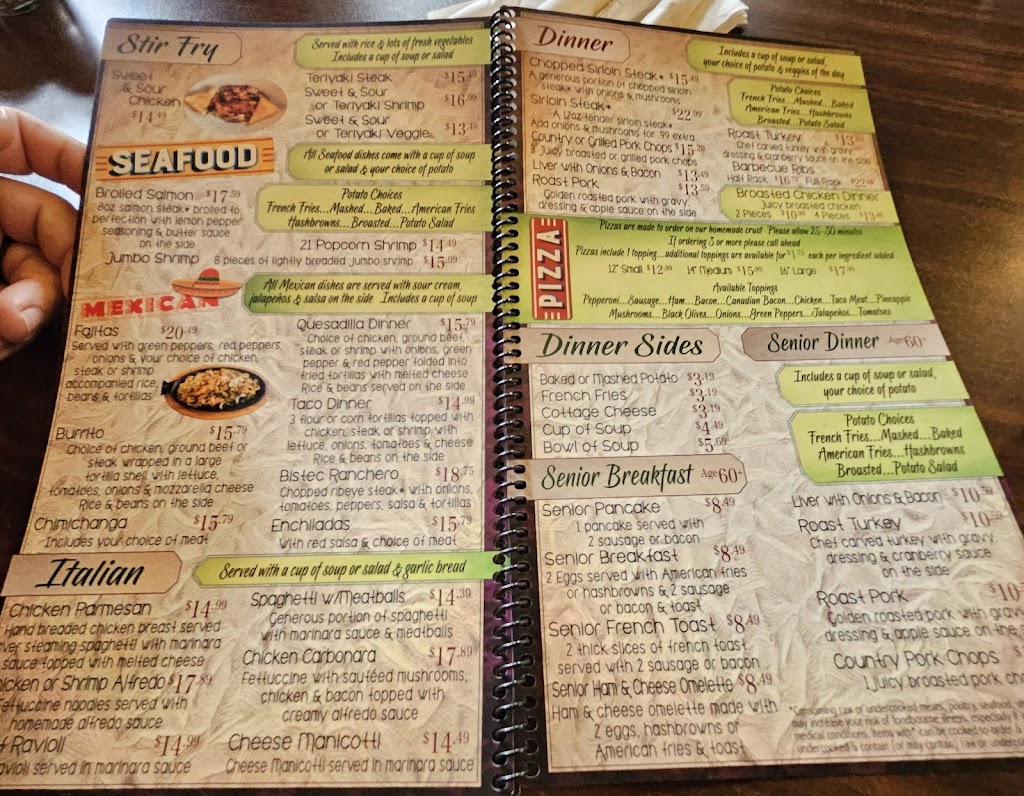 Stir Fry
Served with rice & lots of fresh vegetables
Includes a cup of soup or salad
Sweet
& Sour
Chicken
$14.49
Teriyaki Steak $15.49
Sweet & Sour
or Teriyaki Shrimp $16.99
Sweet & Sour
or Teriyaki Veggie $13.49
SEAFOOD
All Seafood dishes come with a cup of soup
or salad & your choice of potato
Broiled Salmon $17.59
8oz salmon steak* broiled to
perfection with lemon pepper
seasoning & butter sauce
on the side
Potato Choices
French Fries...Mashed...Baked...American Fries
Hashbrowns...Broasted...Potato Salad
21 Popcorn Shrimp $14.49
Jumbo Shrimp 8 pieces of lightly breaded jumbo shrimp $15.99
MEXICAN
All Mexican dishes are served with sour cream,
jalapeños & salsa on the side Includes a cup of soup
Fajitas $20.49
Served with green peppers, red peppers,
onions & your choice of chicken,
steak or shrimp
accompanied rice,
beans & tortillas
Burrito $15.79
Choice of chicken, ground beef or
steak wrapped in a large
tortilla shell with lettuce,
tomatoes, onions & mozzarella cheese
Rice & beans on the side
Chimichanga $15.79
Includes your choice of meat
Quesadilla Dinner $15.79
Choice of chicken, ground beef,
steak or shrimp with onions, green
pepper & red pepper folded into
fried tortillas with melted cheese
Rice & beans served on the side
Taco Dinner $14.99
3 flour or corn tortillas topped with
chicken, steak or shrimp with
lettuce, onions, tomatoes & cheese
Rice & beans on the side
Bistec Ranchero $18.75
Chopped ribeye steak* with onions,
tomatoes, peppers, salsa & tortillas
Enchiladas $15.79
With red salsa & choice of meat
Italian
Served with a cup of soup or salad & garlic bread
Chicken Parmesan $14.99
Hand breaded chicken breast served
over steaming spaghetti with marinara
sauce topped with melted cheese
Chicken or Shrimp Alfredo $17.89
Fettuccine noodles served with
homemade alfredo sauce
Ravioli $14.99
served in marinara sauce
Spaghetti w/Meatballs $14.39
Generous portion of spaghetti
with marinara sauce & meatballs
Chicken Carbonara $17.89
Fettuccine with sautéed mushrooms,
chicken & bacon topped with
creamy alfredo sauce
Cheese Manicotti $14.49
Cheese Manicotti served in marinara sauce
Dinner
Includes a cup of soup or salad,
your choice of potato & veggies of the day
Chopped Sirloin Steak* $15.49
A generous portion of chopped sirloin
steak* with onions & mushrooms
Sirloin Steak* $22.99
A 12oz tender sirloin steak*
Add onions & mushrooms for .99 extra
Country or Grilled Pork Chops $15.29
Juicy broasted or grilled pork chops
Liver with Onions & Bacon $13.49
Roast Pork $13.59
Golden roasted pork with gravy,
dressing & apple sauce on the side
Potato Choices
French Fries...Mashed...Baked
American Fries...Hashbrowns
Broasted...Potato Salad
Roast Turkey
Chef carved turkey with gravy,
dressing & cranberry sauce on the side
Barbecue Ribs
Half Rack Full Rack
Broasted Chicken Dinner
Juicy broasted chicken
2 Pieces $10.99 4 Pieces $13.49
PIZZA
Pizzas are made to order on our homemade crust Please allow 25-30 minutes
If ordering 3 or more please call ahead
Pizzas include 1 topping...additional toppings are available for $1.75 each per ingredient added
12" Small $12.99 14" Medium $15.99 16" Large $17.99
Available Toppings
Pepperoni...Sausage...Ham...Bacon...Canadian Bacon...Chicken...Taco Meat...Pineapple
Mushrooms...Black Olives...Onions...Green Peppers...Jalapeños...Tomatoes
Dinner Sides
Baked or Mashed Potato $3.19
French Fries $3.19
Cottage Cheese $3.19
Cup of Soup $4.49
Bowl of Soup $5.69
Senior Breakfast Age 60+
Senior Pancake $8.49
1 pancake served with
2 sausage or bacon
Senior Breakfast $8.49
2 Eggs served with American fries
or hashbrowns & 2 sausage
or bacon & toast
Senior French Toast $8.49
2 thick slices of french toast
served with 2 sausage or bacon
Senior Ham & Cheese Omelette $8.49
Ham & cheese omelette made with
2 eggs, hashbrowns or
American fries & toast
Senior Dinner Age 60+
Includes a cup of soup or salad,
your choice of potato
Potato Choices
French Fries...Mashed...Baked
American Fries...Hashbrowns
Broasted...Potato Salad
Liver with Onions & Bacon $10.59
Roast Turkey $10.59
Chef carved turkey with gravy,
dressing & cranberry sauce
on the side
Roast Pork $10
Golden roasted pork with gravy
dressing & apple sauce on the
Country Pork Chops $
1 Juicy broasted pork
*Consuming raw or undercooked meats, poultry, seafood,
may increase your risk of foodbourne illness, especially
medical conditions. Items with * can be cooked to order &
undercooked & contain (or may contain) raw or